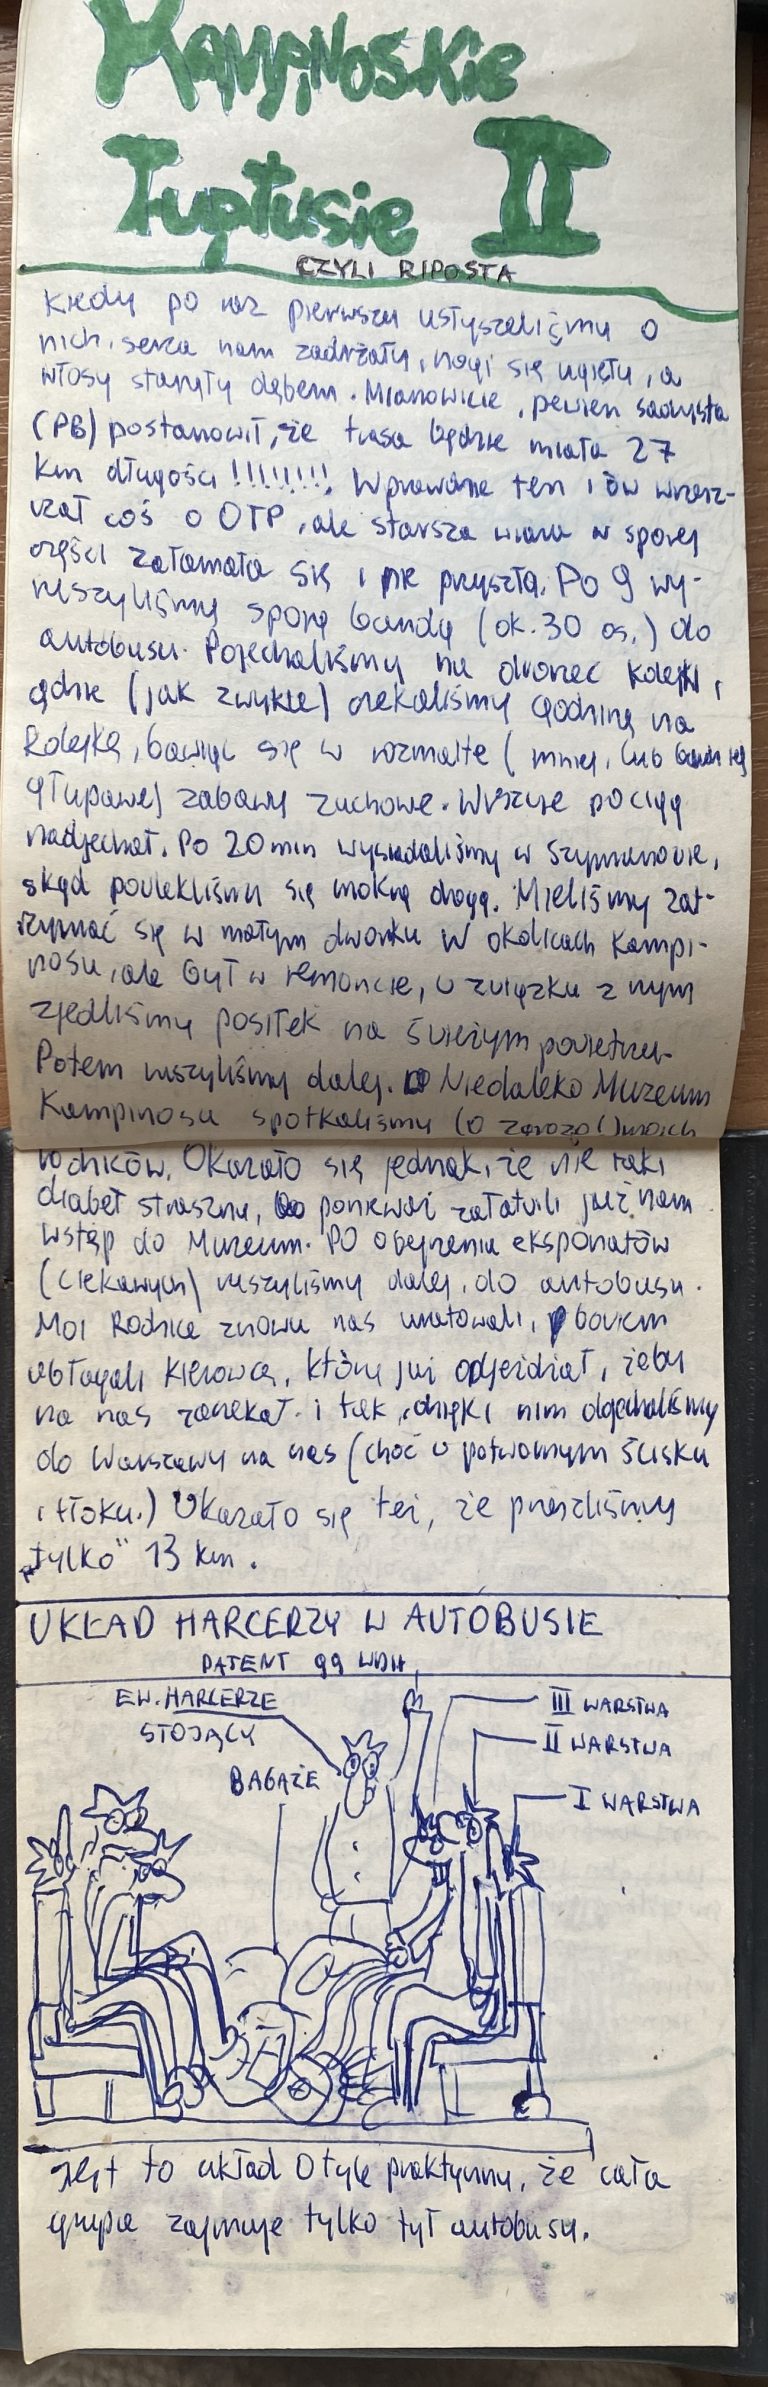 Kampinoskie
Tuptusie II
CZYLI RIPOSTA
Kiedy po raz pierwszy usłyszeliśmy o
nich, serca nam zadrżały, nogi się ugięły, a
włosy stanęły dębem. Mianowicie, pewien sadysta
(PB) postanowił, że trasa będzie miała 27
km długości !!!!!!!!. Wprawdzie ten i ów wrzesz-
czał coś o OTP, ale starsza wiara w sporej
części załamała się i nie przyszła. Po 9 wy-
ruszyliśmy sporą bandą (ok. 30 os.) do
autobusu. Pojechaliśmy na dworzec kolejki,
gdzie (jak zwykle) czekaliśmy godzinę na
kolejkę, bawiąc się w rozmaite (mniej, lub bardziej
głupawe) zabawy zuchowe. Wreszcie pociąg
nadjechał. Po 20 min wysiadaliśmy w Szymanowie,
skąd powlekliśmy się mokrą drogą. Mieliśmy zat-
rzymać się w małym dworku w okolicach Kampi-
nosu, ale był w remoncie, w związku z czym
zjedliśmy posiłek na świeżym powietrzu.
Potem ruszyliśmy dalej. Niedaleko Muzeum
Kampinosu spotkaliśmy (o zgrozo!) moich
rodziców. Okazało się jednak, że nie taki
diabeł straszny, ponieważ załatwili już nam
wstęp do Muzeum. Po obejrzeniu eksponatów
(ciekawych) ruszyliśmy dalej, do autobusu.
Moi Rodzice znowu nas uratowali, bowiem
ubłagali kierowcę, który już odjeżdżał, żeby
na nas zaczekał. i tak, dzięki nim dojechaliśmy
do Warszawy na czas (choć w potwornym ścisku
i tłoku.) Okazało się też, że przeszliśmy
„tylko" 13 km.
UKŁAD HARCERZY W AUTOBUSIE
PATENT 99 WDH
EW. HARCERZE
STOJĄCY
BAGAŻE
III WARSTWA
II WARSTWA
I WARSTWA
Jest to układ o tyle praktyczny, że cała
grupa zajmuje tylko tył autobusu.